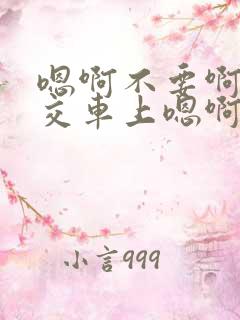 嗯啊不要啊
交車上嗯啊
小言999